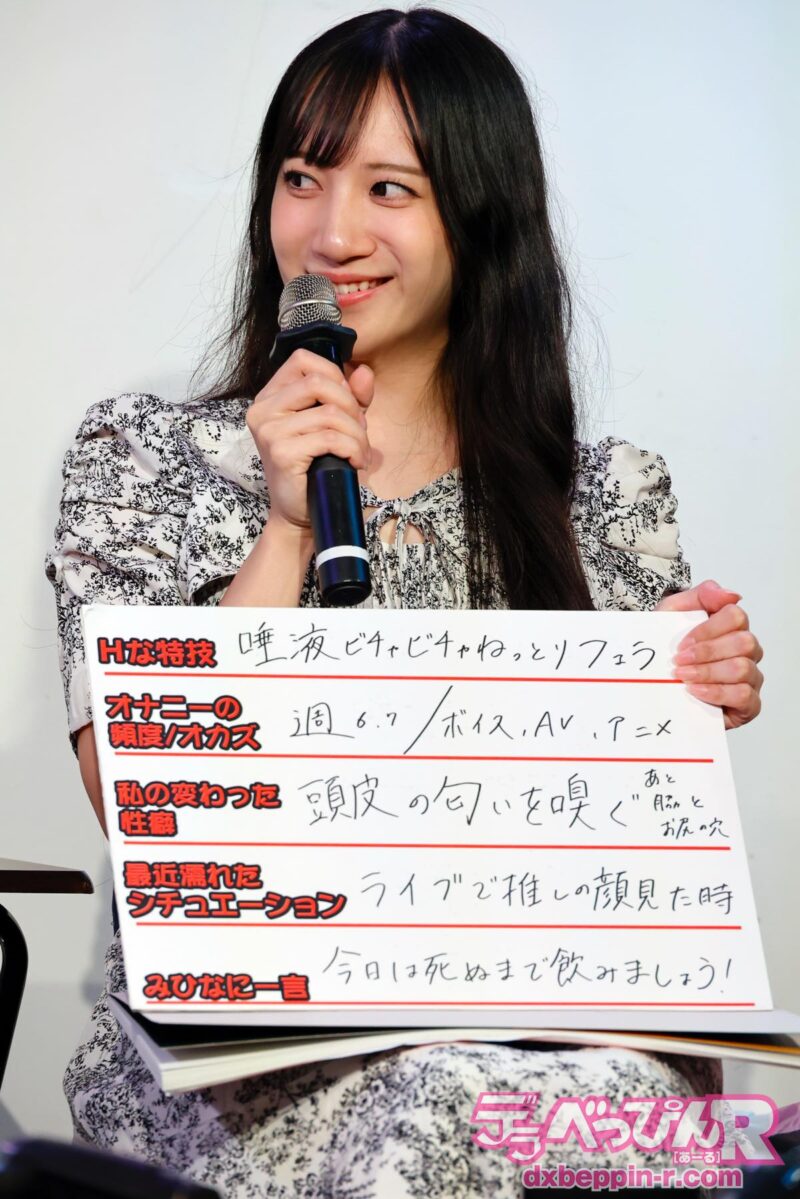 Hな特技 唾液ビチャビチャねっとりフェラ
オナニーの
頻度/オカズ 週6.7/ボイス、AV、アニメ
私の変わった
性癖 頭皮の匂いを嗅ぐ
あと
脇と
お尻の穴
最近濡れた
シチュエーション ライブで推しの顔見た時
みひなに一言 今日は死ぬまで飲みましょう!
デラべっぴんR
[あーる]
dxbeppin-r.com